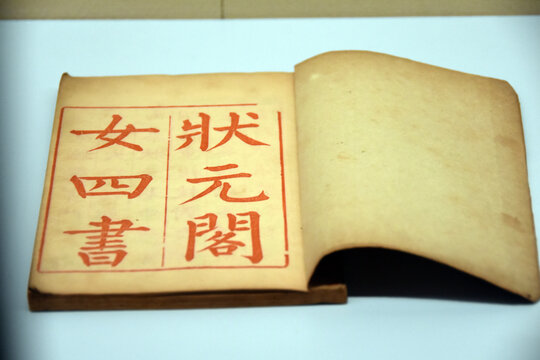 狀元閣
女四書